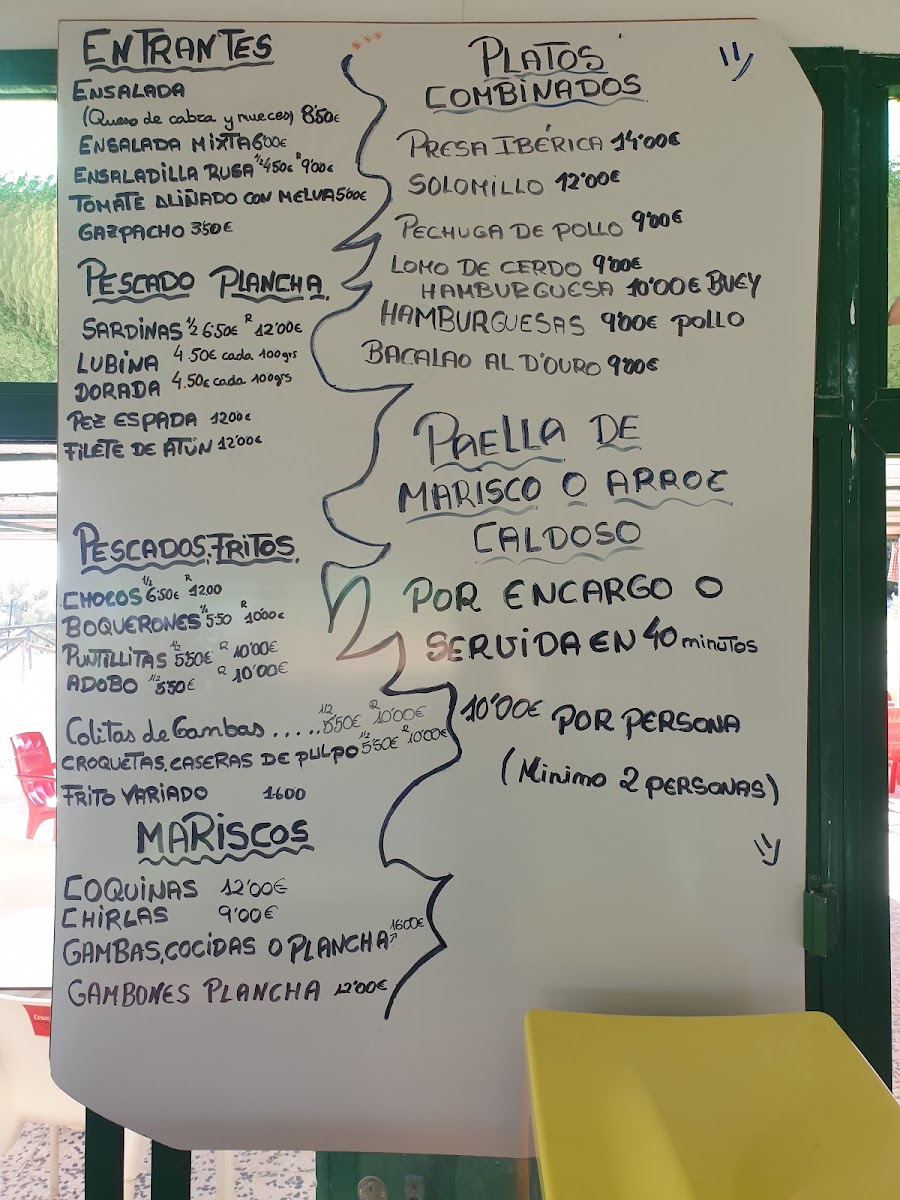 ENTRANTES
ENSALADA
(Queso de cabra y nueces) 8'50€
ENSALADA MIXTA 6'00€
ENSALADILLA RUSA 1/2 4'50€ R 9'00€
TOMATE ALIÑADO CON MELVA 5'00€
GAZPACHO 3'50€
PESCADO PLANCHA
SARDINAS 1/2 6'50€ R 12'00€
LUBINA 4.50€ cada 100grs
DORADA 4.50€ cada 100grs
PEZ ESPADA 12'00€
FILETE DE ATÚN 12'00€
PESCADOS, FRITOS
CHOCOS 1/2 6'50€ R 12'00
BOQUERONES 1/2 5'50 R 10'00€
PUNTILLITAS 1/2 5'50€ R 10'00€
ADOBO 1/2 5'50€ R 10'00€
Colitas de Gambas ..... 1/2 5'50€ R 10'00€
CROQUETAS, CASERAS DE PULPO 1/2 5'50€ R 10'00€
FRITO VARIADO 16'00
MARISCOS
COQUINAS 12'00€
CHIRLAS 9'00€
GAMBAS, COCIDAS O PLANCHA 16'00€
GAMBONES PLANCHA 12'00€
PLATOS
COMBINADOS
PRESA IBÉRICA 14'00€
SOLOMILLO 12'00€
PECHUGA DE POLLO 9'00€
LOMO DE CERDO 9'00€
HAMBURGUESA 10'00€ BUEY
HAMBURGUESAS 9'00€ POLLO
BACALAO AL D'OURO 9'00€
PAELLA DE
MARISCO O ARROZ
CALDOSO
POR ENCARGO O
SERVIDA EN 40 minutos
10'00€ POR PERSONA
(Minimo 2 PERSONAS)